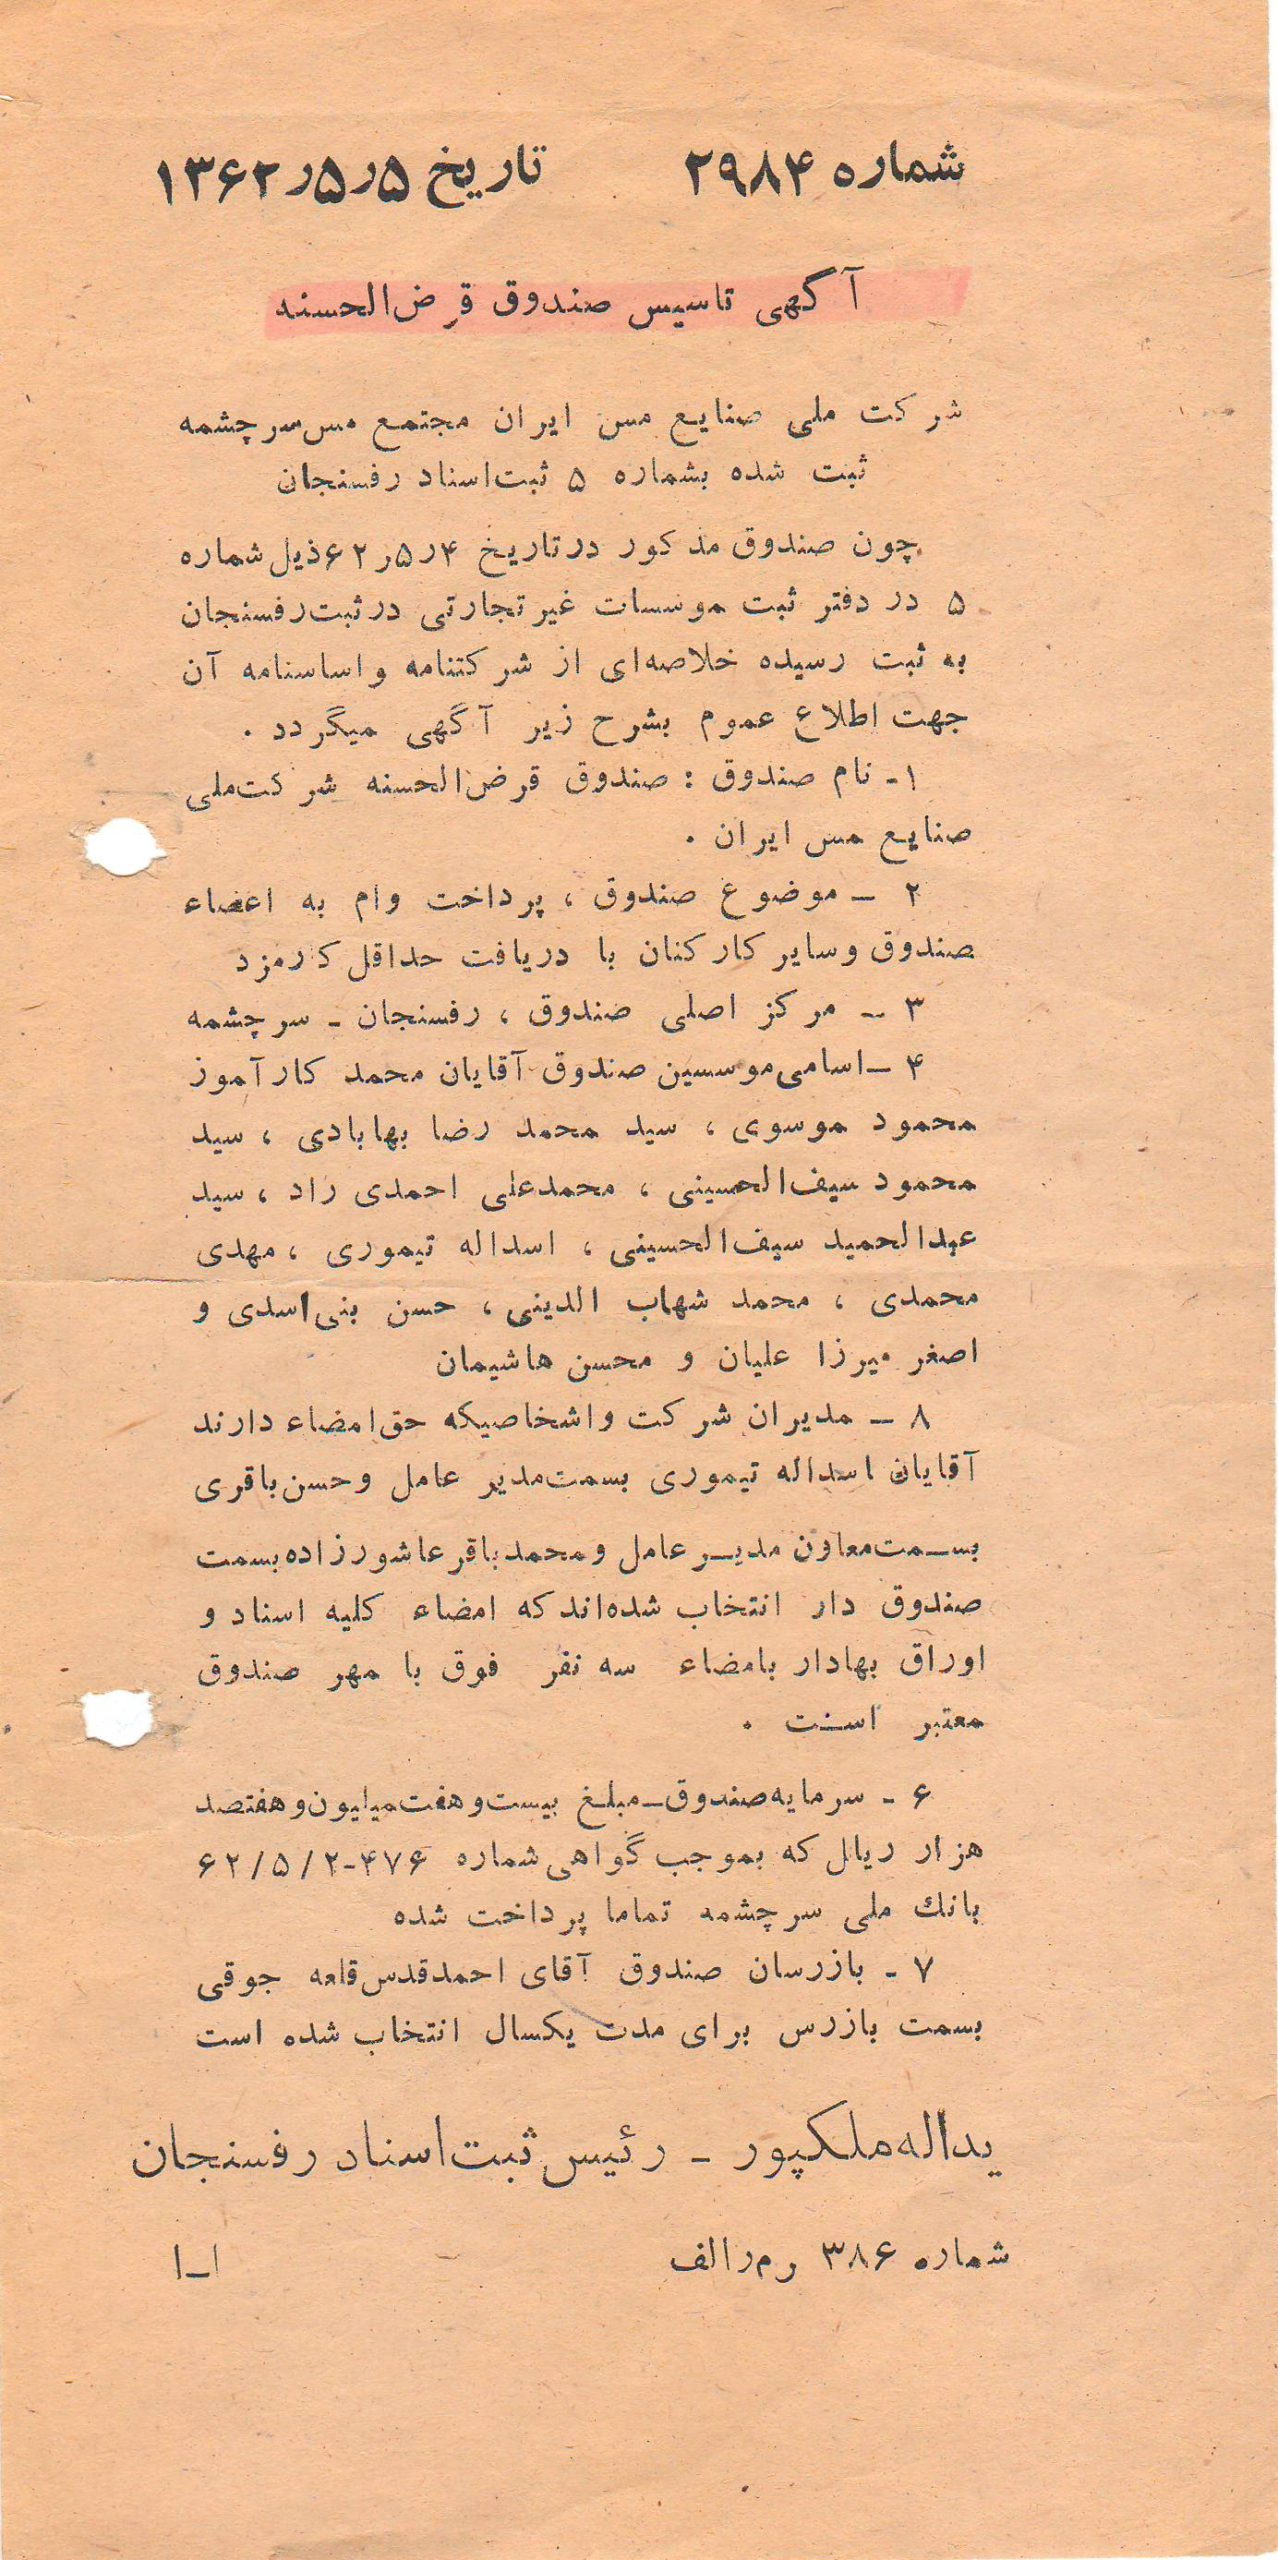 شماره ۲۹۸۴ تاریخ ۵ر۵ر۱۳۶۲
آگهی تاسیس صندوق قرض‌الحسنه
شرکت ملی صنایع مس ایران مجتمع مس‌سرچشمه
ثبت شده بشماره ۵ ثبت‌اسناد رفسنجان
چون صندوق مذکور درتاریخ ۴ر۵ر۶۲ ذیل شماره
۵ در دفتر ثبت موسسات غیرتجارتی درثبت‌رفسنجان
به ثبت رسیده خلاصه‌ای از شرکتنامه واساسنامه آن
جهت اطلاع عموم بشرح زیر آگهی میگردد .
۱- نام صندوق : صندوق قرض‌الحسنه شرکت‌ملی
صنایع مس ایران .
۲ - موضوع صندوق ، پرداخت وام به اعضاء
صندوق وسایر کارکنان با دریافت حداقل کارمزد
۳ - مرکز اصلی صندوق ، رفسنجان - سرچشمه
۴ -اسامی‌موسسین صندوق آقایان محمد کارآموز
محمود موسوی ، سید محمد رضا بهابادی ، سید
محمود سیف‌الحسینی ، محمدعلی احمدی راد ، سید
عبدالحمید سیف‌الحسینی ، اسداله تیموری ، مهدی
محمدی ، محمد شهاب الدینی ، حسن بنی‌اسدی و
اصغر میرزا علیان و محسن هاشیمان
۸ - مدیران شرکت واشخاصیکه حق‌امضاء دارند
آقایان اسداله تیموری بسمت‌مدیر عامل وحسن‌باقری
بسمت‌معاون مدیر عامل ومحمدباقر عاشورزاده بسمت
صندوق دار انتخاب شده‌اند که امضاء کلیه اسناد و
اوراق بهادار بامضاء سه نفر فوق با مهر صندوق
معتبر است .
۶ - سرمایه‌صندوق-مبلغ بیست‌وهفت‌میلیون‌وهفتصد
هزار ریال که بموجب گواهی شماره ۴۷۶-۶۲/۵/۲
بانک ملی سرچشمه تماما پرداخت شده
۷ - بازرسان صندوق آقای احمدقدس‌قلعه جوقی
بسمت بازرس برای مدت یکسال انتخاب شده است
یداله‌ملکپور - رئیس ثبت‌اسناد رفسنجان
شماره ۳۸۶ رم‌رالف ۱-۱